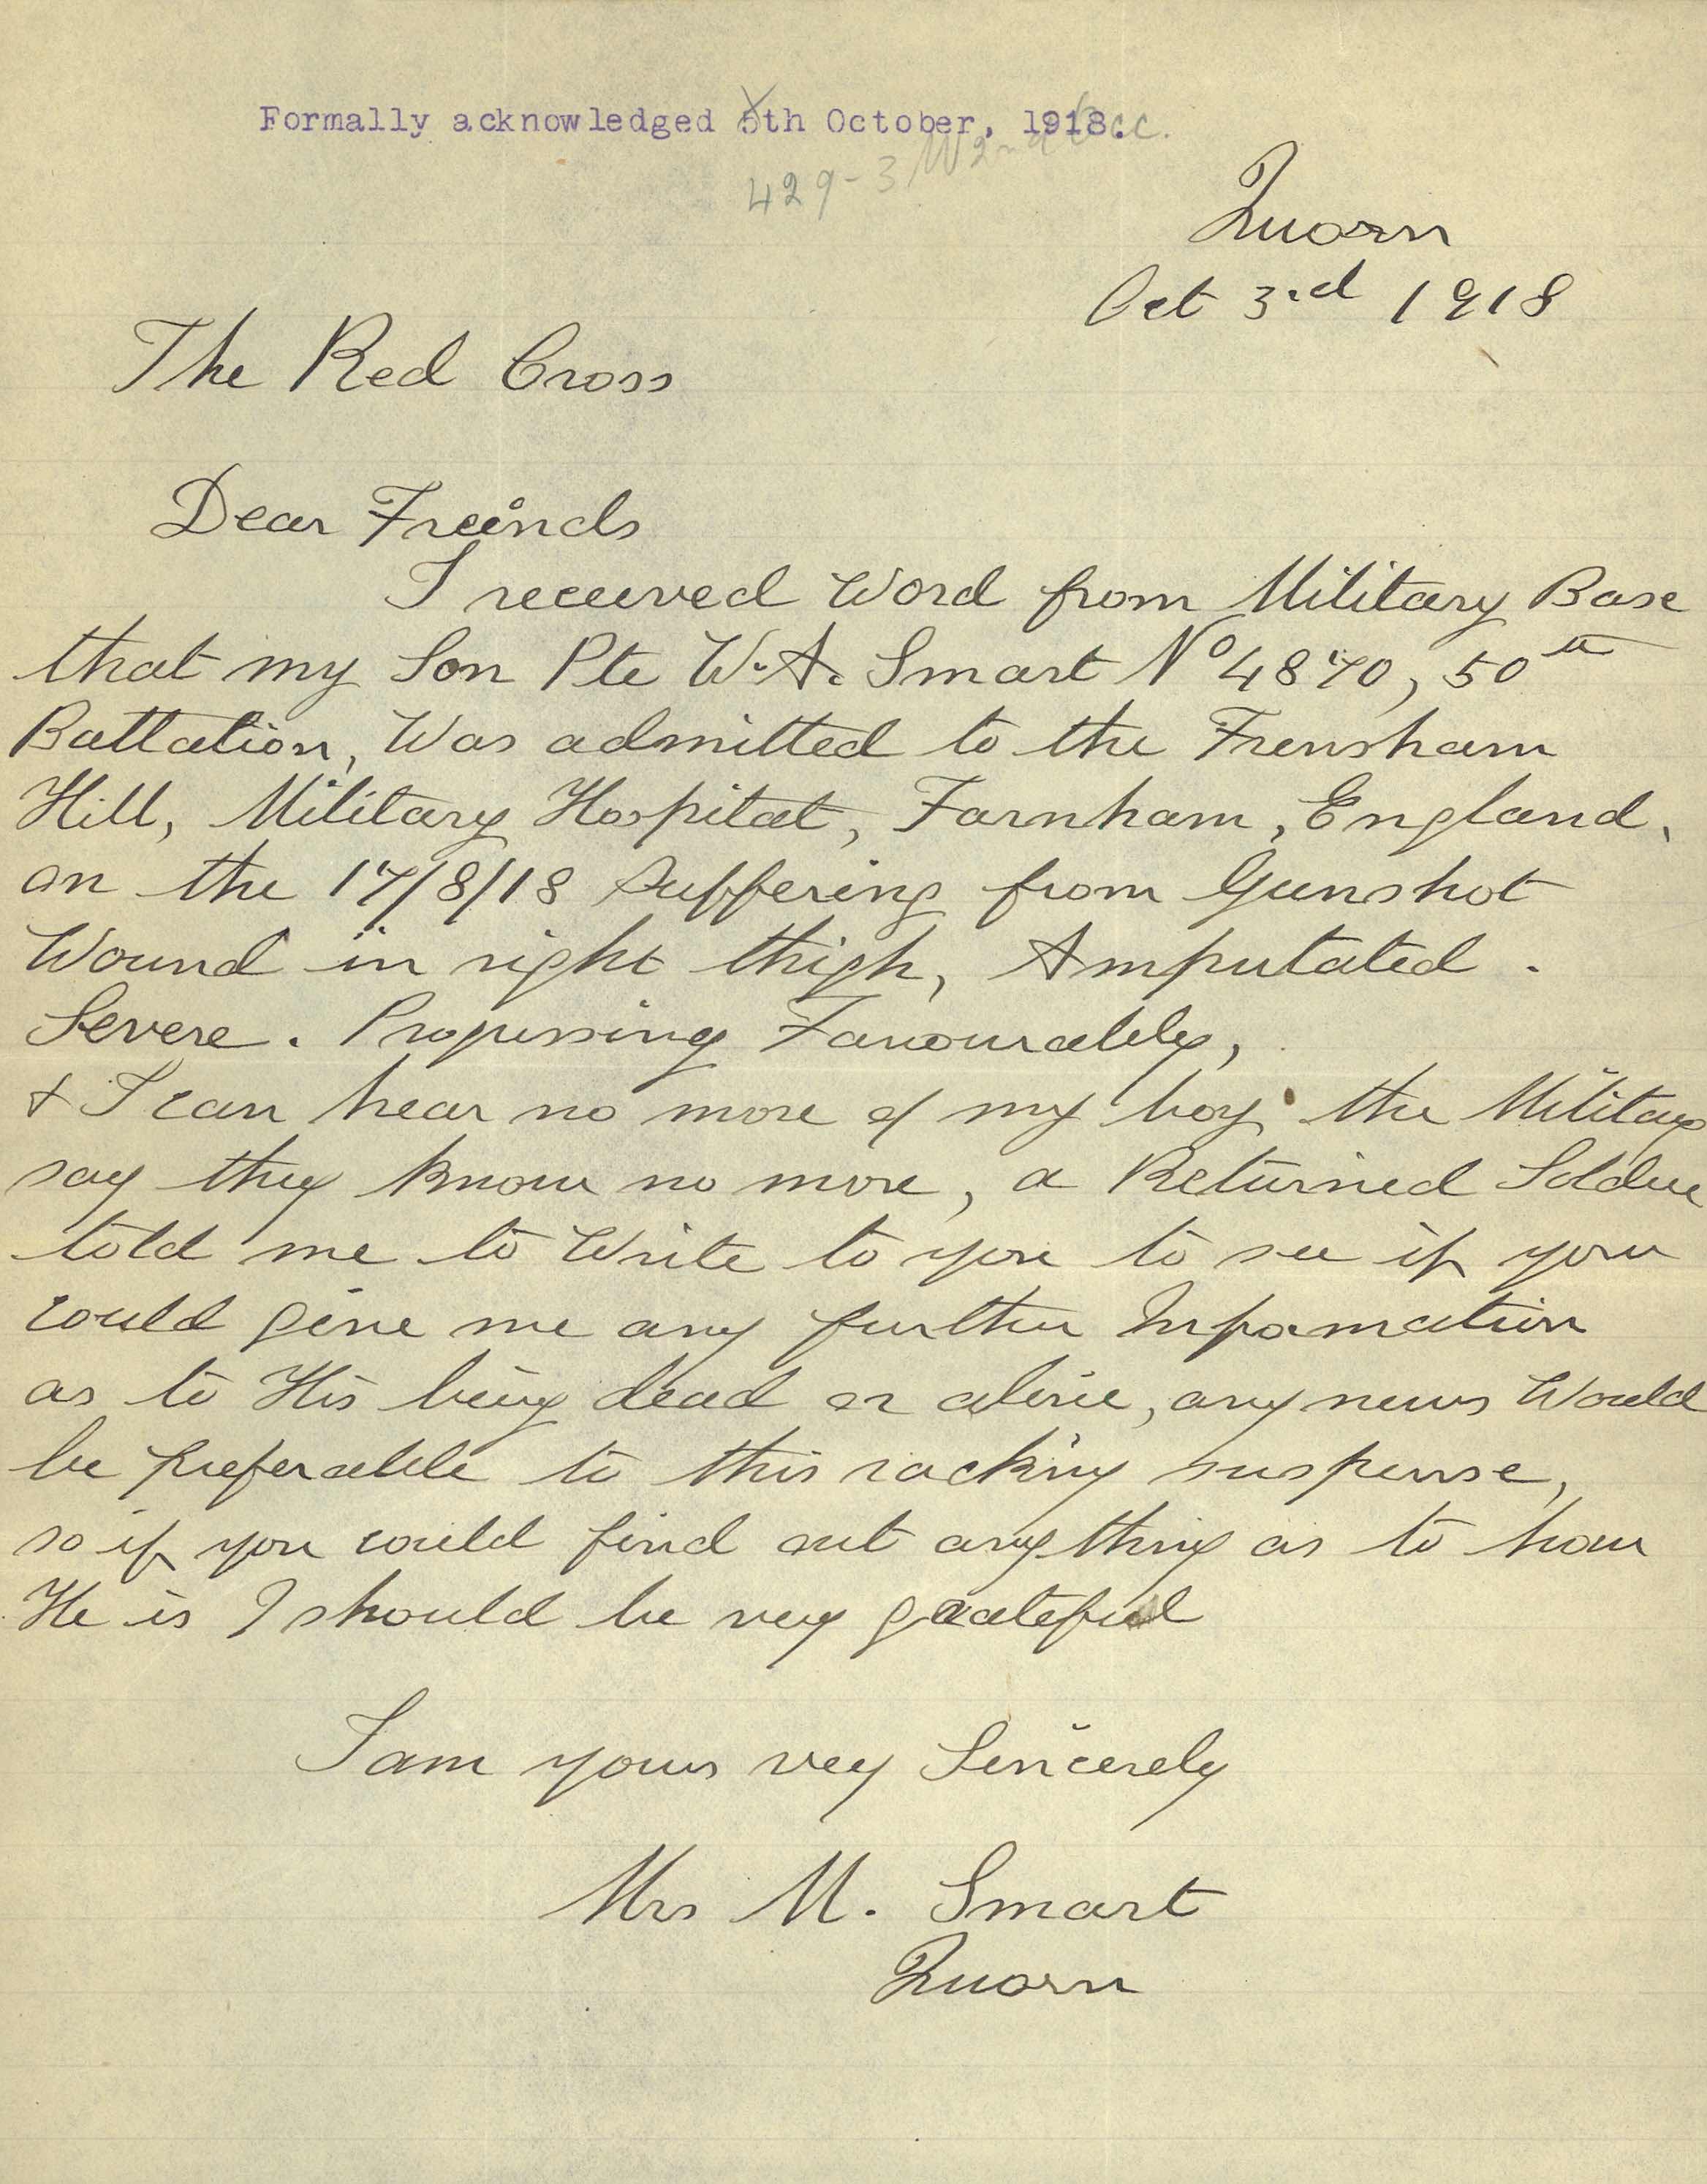 Formally acknowledged 5th October, 1918.
429-3
Quorn
Oct 3rd 1918
The Red Cross
Dear Freinds
I received Word from Military Base
that my Son Pte W. A. Smart No 4870, 50th
Battation, Was admitted to the Frensham
Hill, Military Hospital, Farnham, England,
on the 17/8/18 Suffering from Gunshot
Wound in right thigh, Amputated.
Severe. Progressing Favourably,
& I can hear no more of my boy, the Military
say they know no more, a Returned Soldier
told me to Write to you to see if you
could give me any further Information
as to His being dead or alive, any news Would
be preferable to this racking suspense,
so if you could find out anything as to how
He is I should be very grateful
I am yours very Sincerely
Mrs M. Smart
Quorn